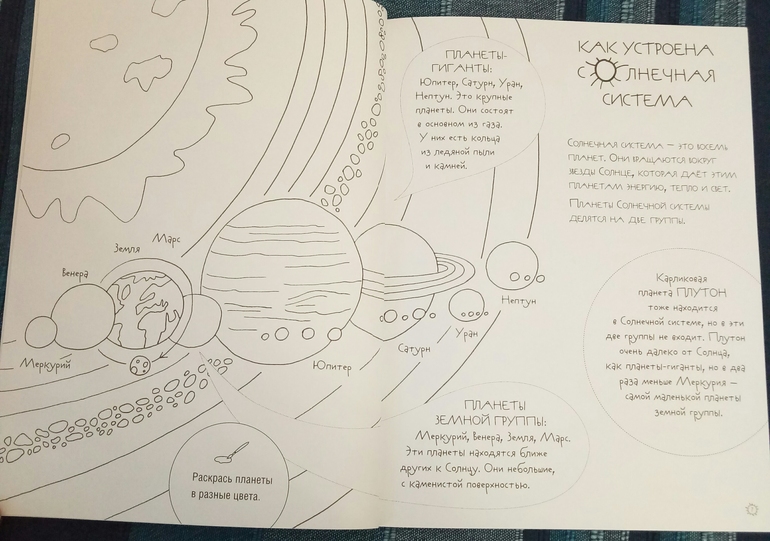 КАК УСТРОЕНА
СОЛНЕЧНАЯ
СИСТЕМА
СОЛНЕЧНАЯ СИСТЕМА — ЭТО ВОСЕМЬ
ПЛАНЕТ. ОНИ ВРАЩАЮТСЯ ВОКРУГ
ЗВЕЗДЫ СОЛНЦЕ, КОТОРАЯ ДАЁТ ЭТИМ
ПЛАНЕТАМ ЭНЕРГИЮ, ТЕПЛО И СВЕТ.
ПЛАНЕТЫ СОЛНЕЧНОЙ СИСТЕМЫ
ДЕЛЯТСЯ НА ДВЕ ГРУППЫ.
ПЛАНЕТЫ-
ГИГАНТЫ:
Юпитер, Сатурн, Уран,
Нептун. Это крупные
планеты. Они состоят
в основном из газа.
У них есть кольца
из ледяной пыли
и камней.
Марс
Земля
Венера
Меркурий
Юпитер
Сатурн
Уран
Нептун
Карликовая
планета ПЛУТОН
тоже находится
в Солнечной системе, но в эти
две группы не входит. Плутон
очень далеко от Солнца,
как планеты-гиганты, но в два
раза меньше Меркурия —
самой маленькой планеты
земной группы.
ПЛАНЕТЫ
ЗЕМНОЙ ГРУППЫ:
Меркурий, Венера, Земля, Марс.
Эти планеты находятся ближе
других к Солнцу. Они небольшие,
с каменистой поверхностью.
Раскрась планеты
в разные цвета.